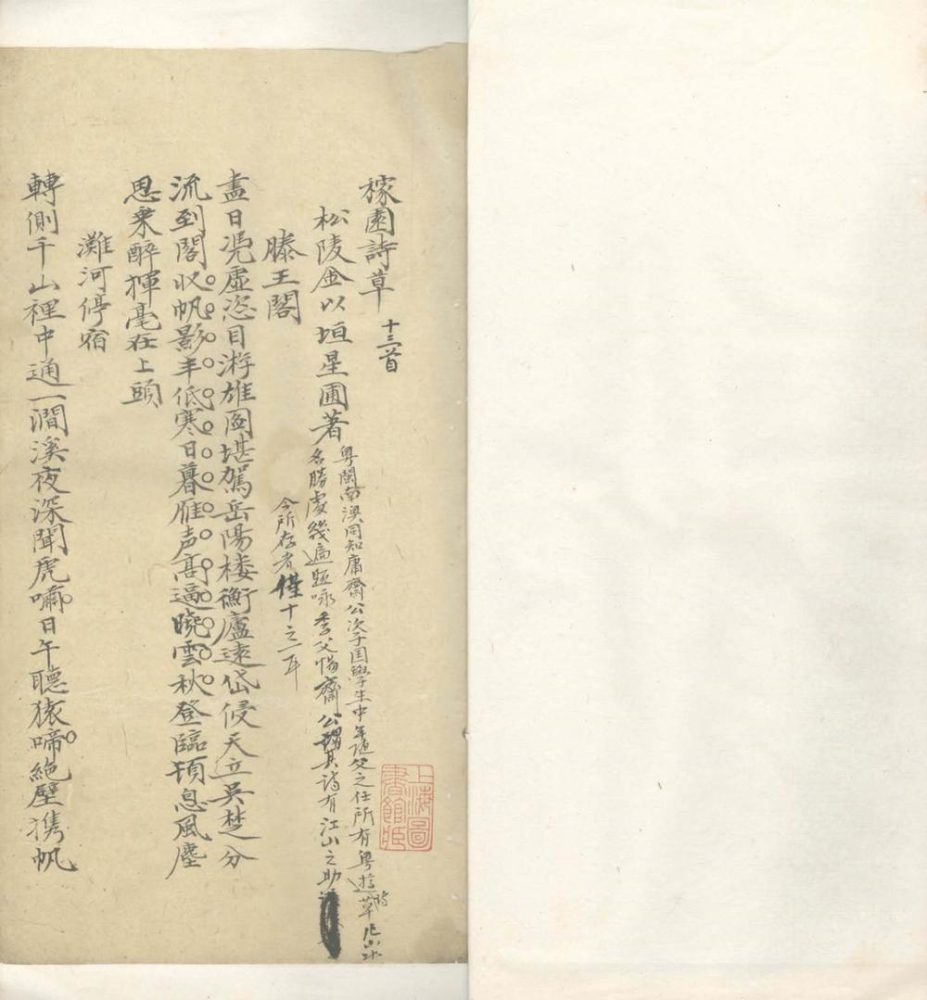 稼園詩草 十三首
松陵金以垣星圃著
粤閩南澳同知庸齋公次子国學生中年随父之任所有粤游詩草凡山水
名勝處幾遍題咏季父惕齋公謂其詩有江山之助
今所存者僅十之二耳
滕王閣
盡日凭虛恣目游雄图堪駕岳陽楼衡廬遠岱侵天立吴楚分
流到閣收帆影半低寒日暮雁声高逼曉雲秋登臨頓息風塵
思乘醉揮毫在上頭
灘河停宿
轉側千山裡中通一澗溪夜深聞虎嘯日午聽猿啼絶壁携帆
上海圖書館藏